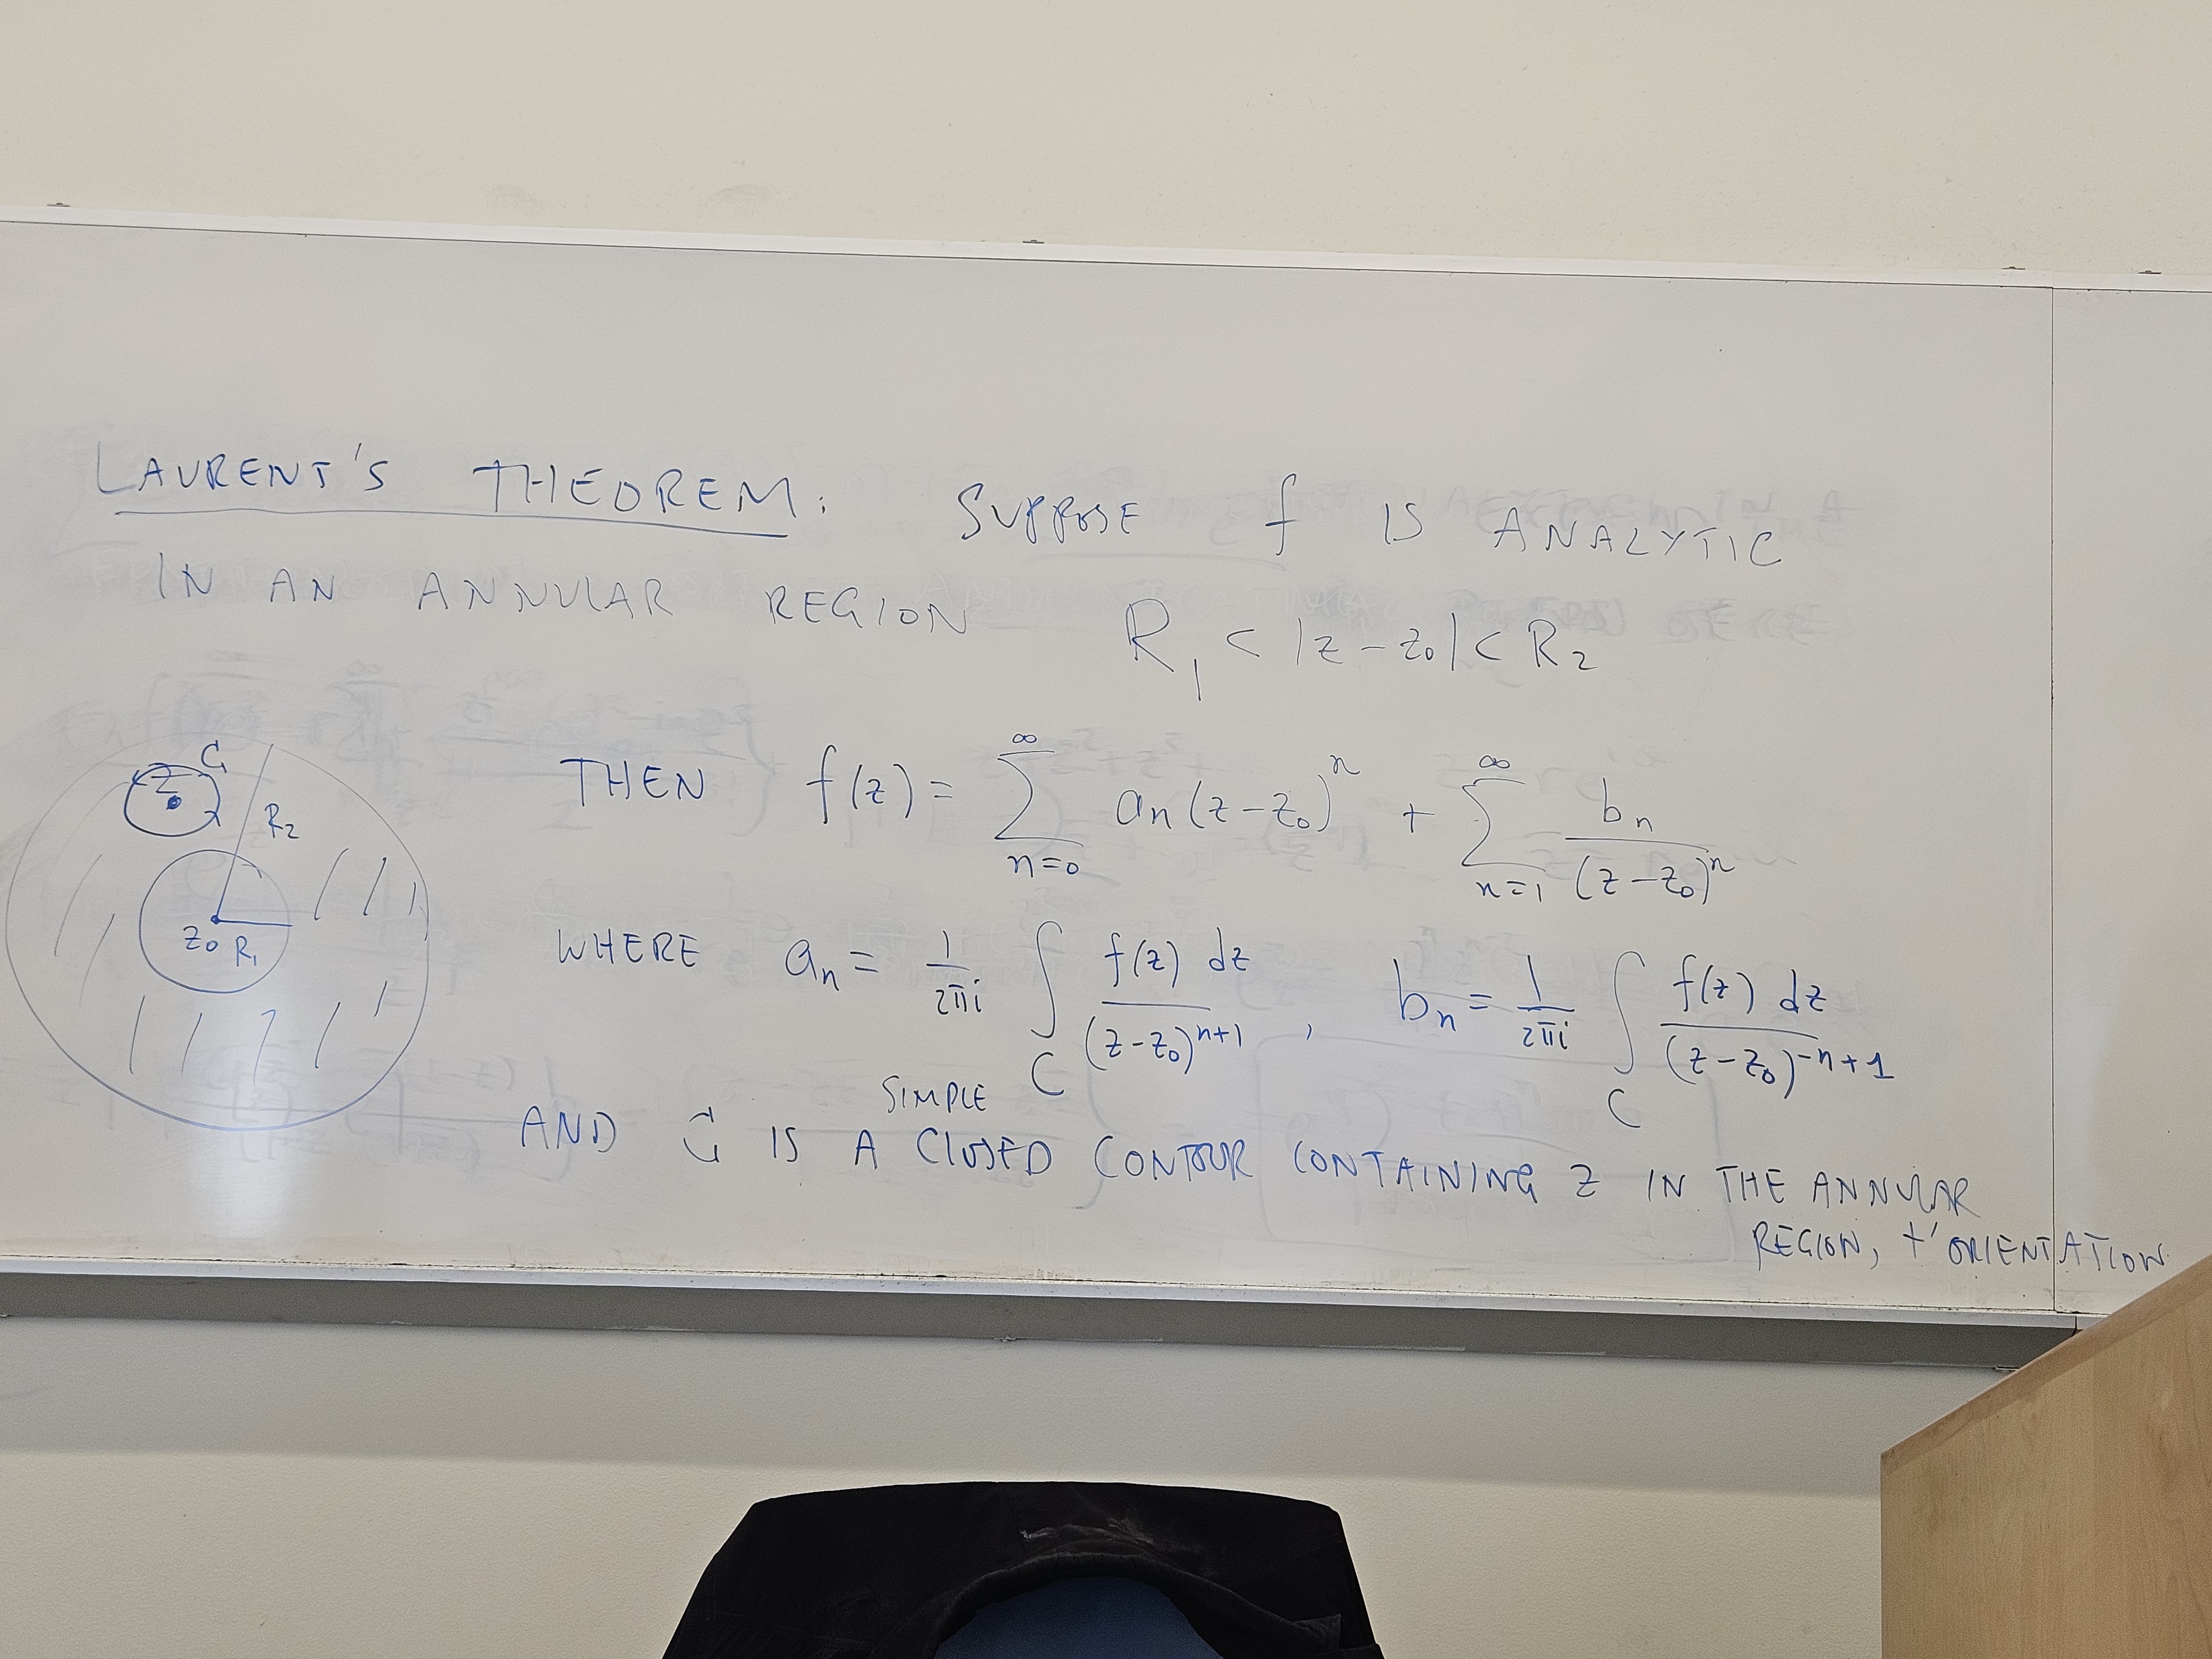 LAURENT'S THEOREM: SUPPOSE f IS ANALYTIC
IN AN ANNULAR REGION R₁ < |z - z₀| < R₂
THEN f(z) = ∑_{n=0}^{∞} aₙ(z-z₀)ⁿ + ∑_{n=1}^{∞} bₙ/(z-z₀)ⁿ
C
z
R₂
z₀ R₁
WHERE aₙ = 1/2πi ∫_C f(z) dz/(z-z₀)ⁿ⁺¹ , bₙ = 1/2πi ∫_C f(z) dz/(z-z₀)⁻ⁿ⁺¹
AND C IS A SIMPLE CLOSED CONTOUR CONTAINING z IN THE ANNULAR
REGION, +' ORIENTATION.